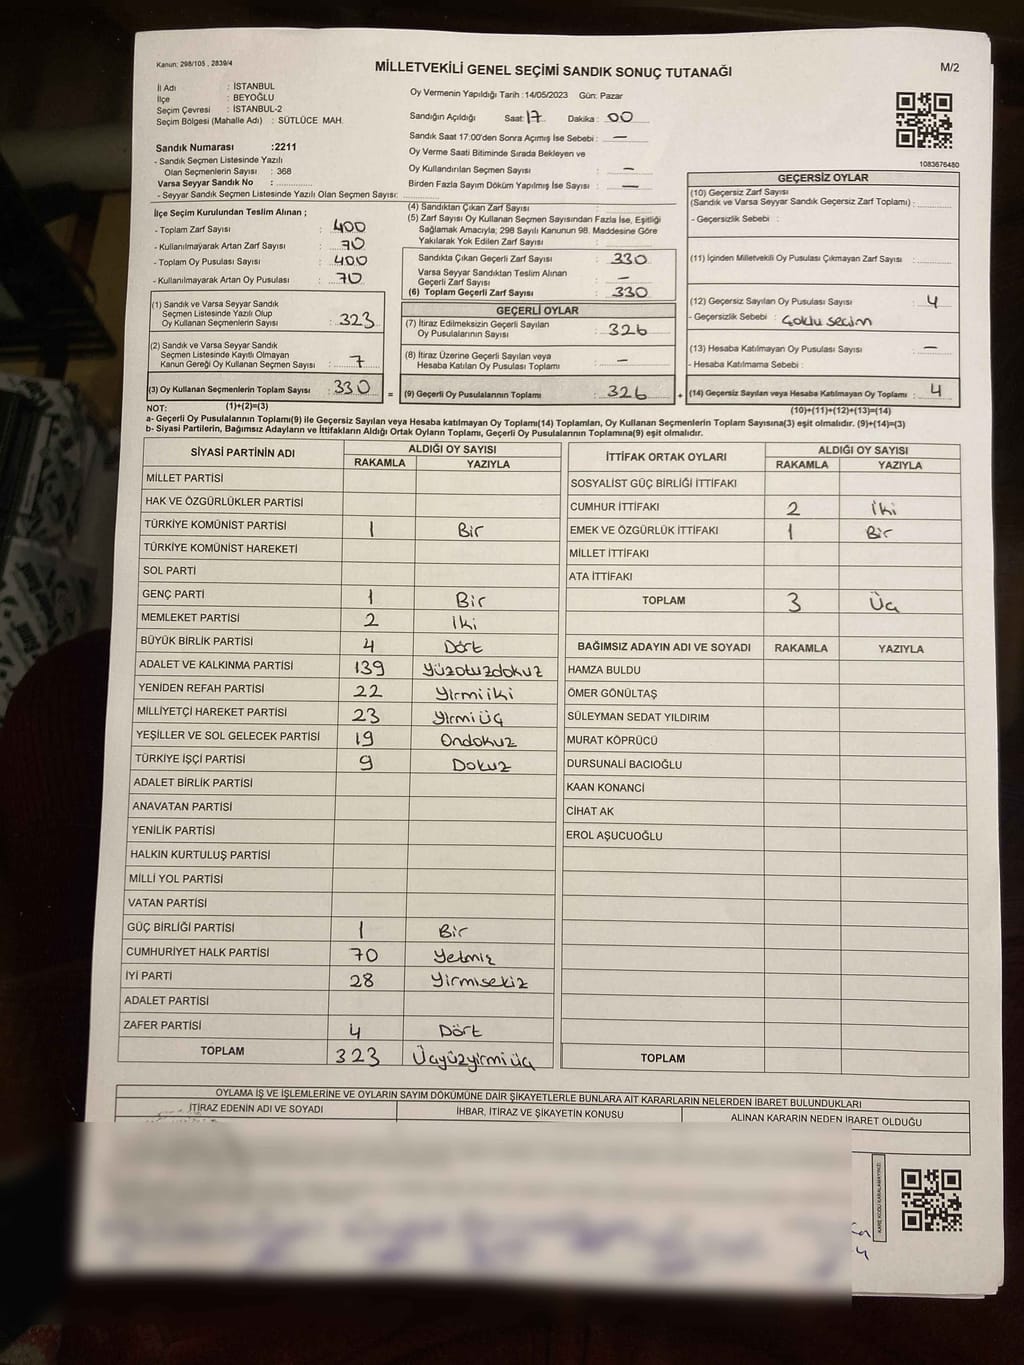 Kanun: 298/105 , 2839/4
MİLLETVEKİLİ GENEL SEÇİMİ SANDIK SONUÇ TUTANAĞI
M/2
İl Adı : İSTANBUL
İlçe : BEYOĞLU
Seçim Çevresi : İSTANBUL-2
Seçim Bölgesi (Mahalle Adı) : SÜTLÜCE MAH.
Sandık Numarası :2211
- Sandık Seçmen Listesinde Yazılı
Olan Seçmenlerin Sayısı : 368
Varsa Seyyar Sandık No :
- Seyyar Sandık Seçmen Listesinde Yazılı Olan Seçmen Sayısı:
Oy Vermenin Yapıldığı Tarih :14/05/2023 Gün: Pazar
Sandığın Açıldığı Saat: 17 Dakika : 00
Sandık Saat 17:00'den Sonra Açımış İse Sebebi : —
Oy Verme Saati Bitiminde Sırada Bekleyen ve
Oy Kullandırılan Seçmen Sayısı : —
Birden Fazla Sayım Döküm Yapılmış İse Sayısı : —
1083676480
İlçe Seçim Kurulundan Teslim Alınan ;
- Toplam Zarf Sayısı : 400
- Kullanılmayarak Artan Zarf Sayısı : 70
- Toplam Oy Pusulası Sayısı : 400
- Kullanılmayarak Artan Oy Pusulası : 70
(1) Sandık ve Varsa Seyyar Sandık
Seçmen Listesinde Yazılı Olup
Oy Kullanan Seçmenlerin Sayısı : 323
(2) Sandık ve Varsa Seyyar Sandık
Seçmen Listesinde Kayıtlı Olmayan
Kanun Gereği Oy Kullanan Seçmen Sayısı : 7
(3) Oy Kullanan Seçmenlerin Toplam Sayısı : 330
(1)+(2)=(3)
(4) Sandıktan Çıkan Zarf Sayısı :
(5) Zarf Sayısı Oy Kullanan Seçmen Sayısından Fazla İse, Eşitliği
Sağlamak Amacıyla; 298 Sayılı Kanunun 98. Maddesine Göre
Yakılarak Yok Edilen Zarf Sayısı :
Sandıkta Çıkan Geçerli Zarf Sayısı : 330
Varsa Seyyar Sandıktan Teslim Alınan
Geçerli Zarf Sayısı : —
(6) Toplam Geçerli Zarf Sayısı : 330
GEÇERLİ OYLAR
(7) İtiraz Edilmeksizin Geçerli Sayılan
Oy Pusulalarının Sayısı : 326
(8) İtiraz Üzerine Geçerli Sayılan veya
Hesaba Katılan Oy Pusulası Toplamı : —
= (9) Geçerli Oy Pusulalarının Toplamı : 326 +
GEÇERSİZ OYLAR
(10) Geçersiz Zarf Sayısı
(Sandık ve Varsa Seyyar Sandık Geçersiz Zarf Toplamı) :
- Geçersizlik Sebebi :
(11) İçinden Milletvekili Oy Pusulası Çıkmayan Zarf Sayısı :
(12) Geçersiz Sayılan Oy Pusulası Sayısı : 4
- Geçersizlik Sebebi : Çoklu seçim
(13) Hesaba Katılmayan Oy Pusulası Sayısı : —
- Hesaba Katılmama Sebebi :
(14) Geçersiz Sayılan veya Hesaba Katılmayan Oy Toplamı : 4
(10)+(11)+(12)+(13)=(14)
NOT:
a- Geçerli Oy Pusulalarının Toplamı(9) ile Geçersiz Sayılan veya Hesaba katılmayan Oy Toplamı(14) Toplamları, Oy Kullanan Seçmenlerin Toplam Sayısına(3) eşit olmalıdır. (9)+(14)=(3)
b- Siyasi Partilerin, Bağımsız Adayların ve İttifakların Aldığı Ortak Oyların Toplamı, Geçerli Oy Pusulalarının Toplamına(9) eşit olmalıdır.
SİYASİ PARTİNİN ADI ALDIĞI OY SAYISI
RAKAMLA YAZIYLA
MİLLET PARTİSİ
HAK VE ÖZGÜRLÜKLER PARTİSİ
TÜRKİYE KOMÜNİST PARTİSİ 1 Bir
TÜRKİYE KOMÜNİST HAREKETİ
SOL PARTİ
GENÇ PARTİ 1 Bir
MEMLEKET PARTİSİ 2 İki
BÜYÜK BİRLİK PARTİSİ 4 Dört
ADALET VE KALKINMA PARTİSİ 139 Yüzotuzdokuz
YENİDEN REFAH PARTİSİ 22 Yirmiiki
MİLLİYETÇİ HAREKET PARTİSİ 23 Yirmiüç
YEŞİLLER VE SOL GELECEK PARTİSİ 19 Ondokuz
TÜRKİYE İŞÇİ PARTİSİ 9 Dokuz
ADALET BİRLİK PARTİSİ
ANAVATAN PARTİSİ
YENİLİK PARTİSİ
HALKIN KURTULUŞ PARTİSİ
MİLLİ YOL PARTİSİ
VATAN PARTİSİ
GÜÇ BİRLİĞİ PARTİSİ 1 Bir
CUMHURİYET HALK PARTİSİ 70 Yetmiş
İYİ PARTİ 28 Yirmisekiz
ADALET PARTİSİ
ZAFER PARTİSİ 4 Dört
TOPLAM 323 Üçyüzyirmiüç
İTTİFAK ORTAK OYLARI ALDIĞI OY SAYISI
RAKAMLA YAZIYLA
SOSYALİST GÜÇ BİRLİĞİ İTTİFAKI
CUMHUR İTTİFAKI 2 İki
EMEK VE ÖZGÜRLÜK İTTİFAKI 1 Bir
MİLLET İTTİFAKI
ATA İTTİFAKI
TOPLAM 3 Üç
BAĞIMSIZ ADAYIN ADI VE SOYADI RAKAMLA YAZIYLA
HAMZA BULDU
ÖMER GÖNÜLTAŞ
SÜLEYMAN SEDAT YILDIRIM
MURAT KÖPRÜCÜ
DURSUNALİ BACIOĞLU
KAAN KONANCİ
CİHAT AK
EROL AŞUCUOĞLU
TOPLAM
OYLAMA İŞ VE İŞLEMLERİNE VE OYLARIN SAYIM DÖKÜMÜNE DAİR ŞİKAYETLERLE BUNLARA AİT KARARLARIN NELERDEN İBARET BULUNDUKLARI
İTİRAZ EDENİN ADI VE SOYADI İHBAR, İTİRAZ VE ŞİKAYETİN KONUSU ALINAN KARARIN NEDEN İBARET OLDUĞU